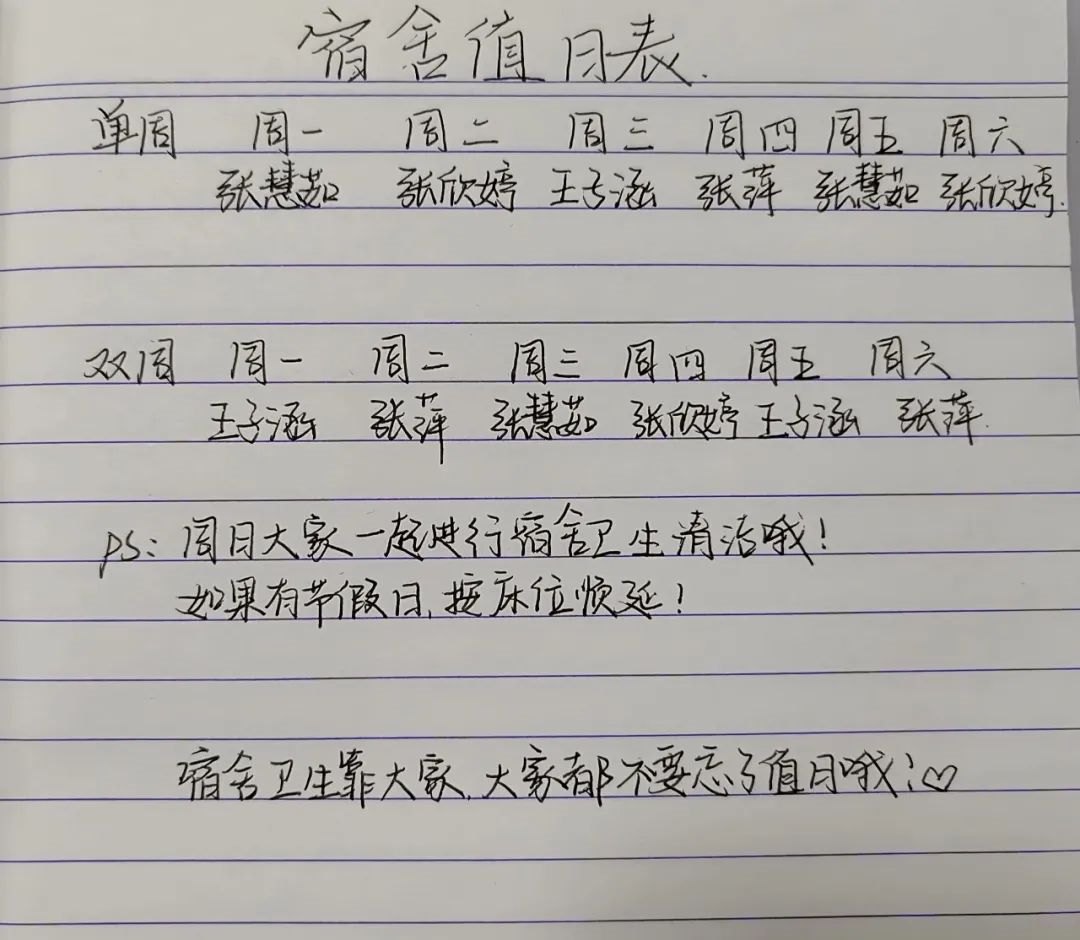 宿舍值日表.
单周 周一 周二 周三 周四 周五 周六
张慧茹 张欣婷 王子涵 张萍 张慧茹 张欣婷.
双周 周一 周二 周三 周四 周五 周六
王子涵 张萍 张慧茹 张欣婷 王子涵 张萍.
PS: 周日大家一起进行宿舍卫生清洁哦!
如果有节假日,按床位顺延!
宿舍卫生靠大家,大家都不要忘了值日哦!♡